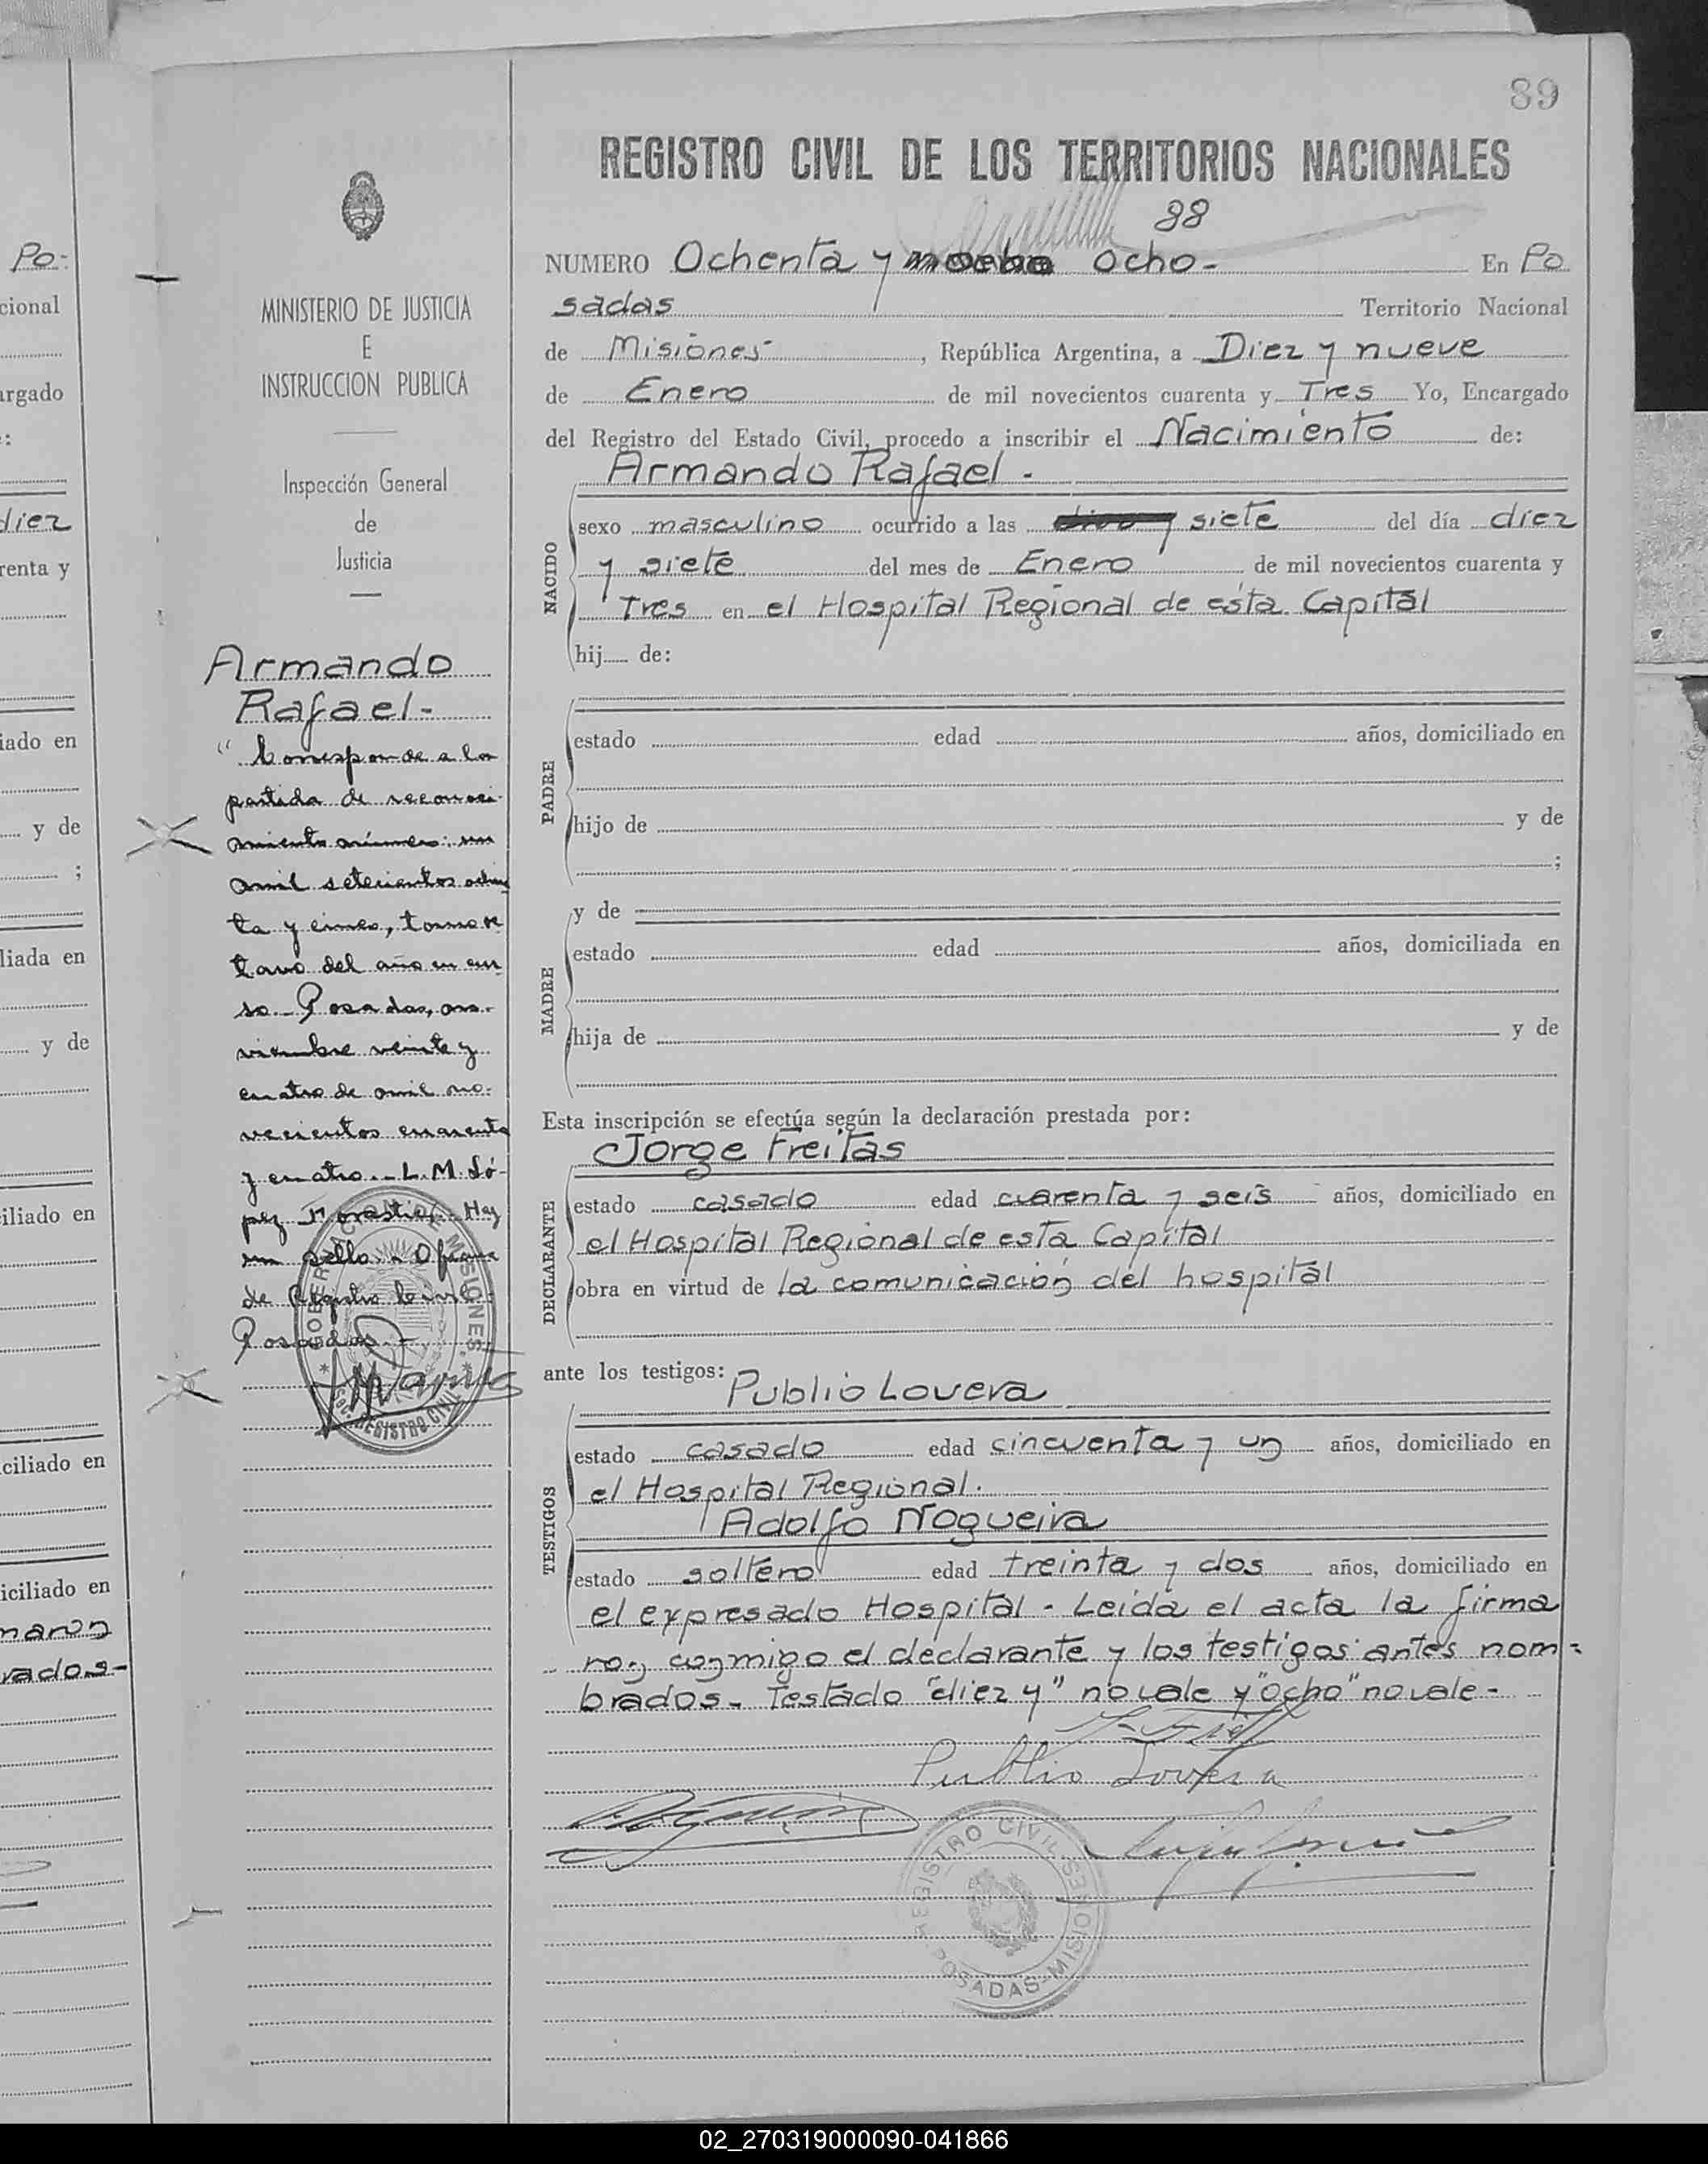 89
REGISTRO CIVIL DE LOS TERRITORIOS NACIONALES
88
NUMERO Ochenta y ocho - En Po
sadas Territorio Nacional
de Misiones , República Argentina, a Diez y nueve
de Enero de mil novecientos cuarenta y Tres Yo, Encargado
del Registro del Estado Civil, procedo a inscribir el Nacimiento de:
Armando Rafael -
NACIDO
sexo masculino ocurrido a las siete del día diez
y siete del mes de Enero de mil novecientos cuarenta y
Tres en el Hospital Regional de esta Capital
hij de:
PADRE
estado edad años, domiciliado en
hijo de y de
;
MADRE
y de
estado edad años, domiciliada en
hija de y de
Esta inscripción se efectúa según la declaración prestada por:
Jorge Freitas
DECLARANTE
estado casado edad cuarenta y seis años, domiciliado en
el Hospital Regional de esta Capital
obra en virtud de la comunicación del hospital
ante los testigos:
Publio Lovera
TESTIGOS
estado casado edad cincuenta y un años, domiciliado en
el Hospital Regional.
Adolfo Nogueira
estado soltero edad treinta y dos años, domiciliado en
el expresado Hospital - Leida el acta la firma
ron conmigo el declarante y los testigos antes nom=
brados - Testado "diez y" no vale y "ocho" no vale -
Publio Lovera
REGISTRO CIVIL
POSADAS-MISIONES
MINISTERIO DE JUSTICIA
E
INSTRUCCION PUBLICA
Inspección General
de
Justicia
Armando
Rafael -
"Corresponde a la
partida de reconoci-
miento número: un
mil setecientos ochen
ta y cinco, tomo oc
tavo del año en cur
so - Posadas, no-
viembre veinte y
cuatro de mil no-
vecientos cuarenta
y cuatro. - L. M. Ló-
pez - Hay
un sello: Oficina
de Registro Civil
Posadas -
MISIONES
REGISTRO CIVIL
Po-
cional
argado
:
diez
renta y
iado en
y de
;
liada en
y de
iliado en
ciliado en
iciliado en
maron
rados-
02_270319000090-041866